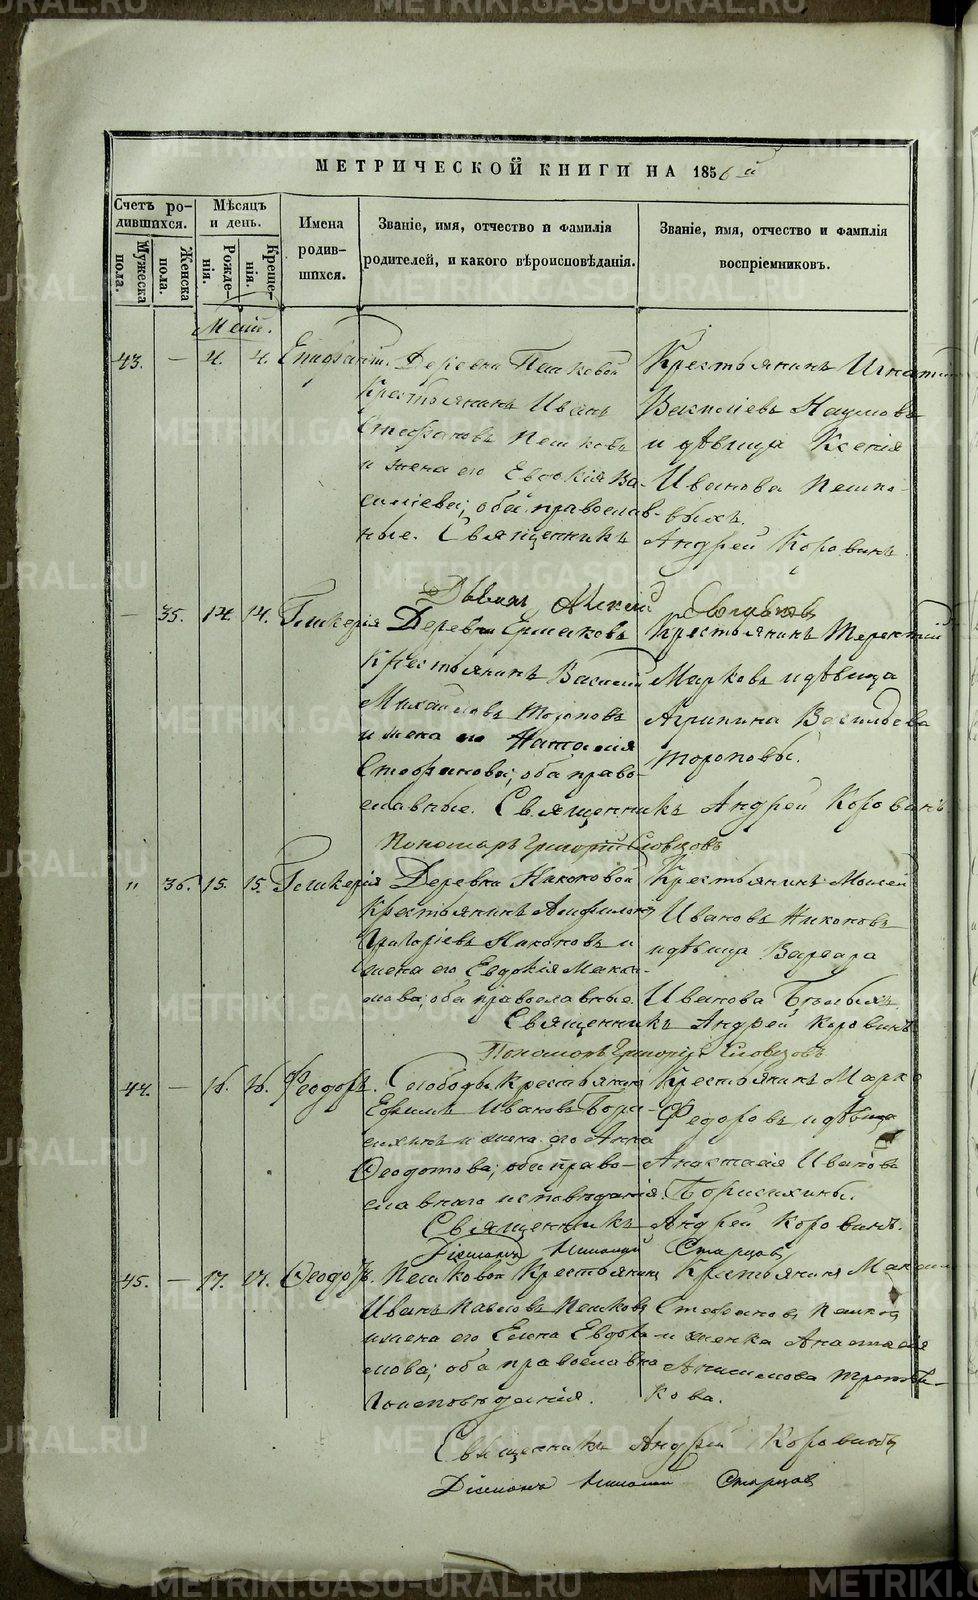 МЕТРИЧЕСКОЙ КНИГИ НА 1856 й
Счетъ ро-
дившихся.
Мужеска
пола.
Женска
пола.
Мѣсяцъ
и день.
Рожде-
нія.
Креще-
нія.
Имена
родив-
шихся.
Званіе, имя, отчество и фамилія
родителей, и какого вѣроисповѣданія.
Званіе, имя, отчество и фамилія
воспріемниковъ.
Маій.
43. — 4. 4. Епифаній. Деревни Пешковой
Крестьянинъ Иванъ
Стефановъ Пешковъ
и жена его Евдокія Ва-
силіева; оба православ-
ные. Священникъ
Крестьянинъ Игнатій
Василіевъ Наумовъ
и дѣвица Ксенія
Иванова Пешко-
выхъ.
Андрей Коровинъ
Дьячекъ Алексій
— 35. 14. 14. Гликерія Деревни Ермаковъ
Крестьянинъ Василій
Михайловъ Тороповъ
и жена его Наталія
Стефанова; оба право-
славные. Священникъ Андрей Коровинъ
Крестьянинъ Терентій
Марковъ и дѣвица
Агрипина Васильева
Тороповы.
Пономарь Григорій Словцовъ
" 36. 15. 15. Гликерія Деревни Никоновой
Крестьянинъ Амфилохій
Григоріевъ Никоновъ и
жена его Евдокія Макси-
мова; оба православные.
Крестьянинъ Моисей
Ивановъ Никоновъ
и дѣвица Варвара
Иванова Бѣлыхъ
Священникъ Андрей Коровинъ
Пономарь Григорій Словцовъ
44. — 16. 16. Феодоръ. Слободы Крестьянинъ
Ефимъ Ивановъ Бори-
сихинъ и жена его Анна
Феодотова; оба право-
славнаго исповѣданія.
Крестьянинъ Марко
Федоровъ и дѣвица
Анастасія Иванова
Борисихины.
Священникъ Андрей Коровинъ.
Діаконъ Николай Старцовъ
45. — 17. 17. Феодоръ. Пешковой Крестьянинъ
Иванъ Павловъ Пешковъ
и жена его Елена Евдоки-
мова; оба православна-
го исповѣданія.
Крестьянинъ Максимъ
Стефановъ Пешковъ
и женка Анастасія
Анисимова Третья-
кова.
Священникъ Андрей Коровинъ
Діаконъ Николай Старцовъ
METRIKI.GASO-URAL.RU